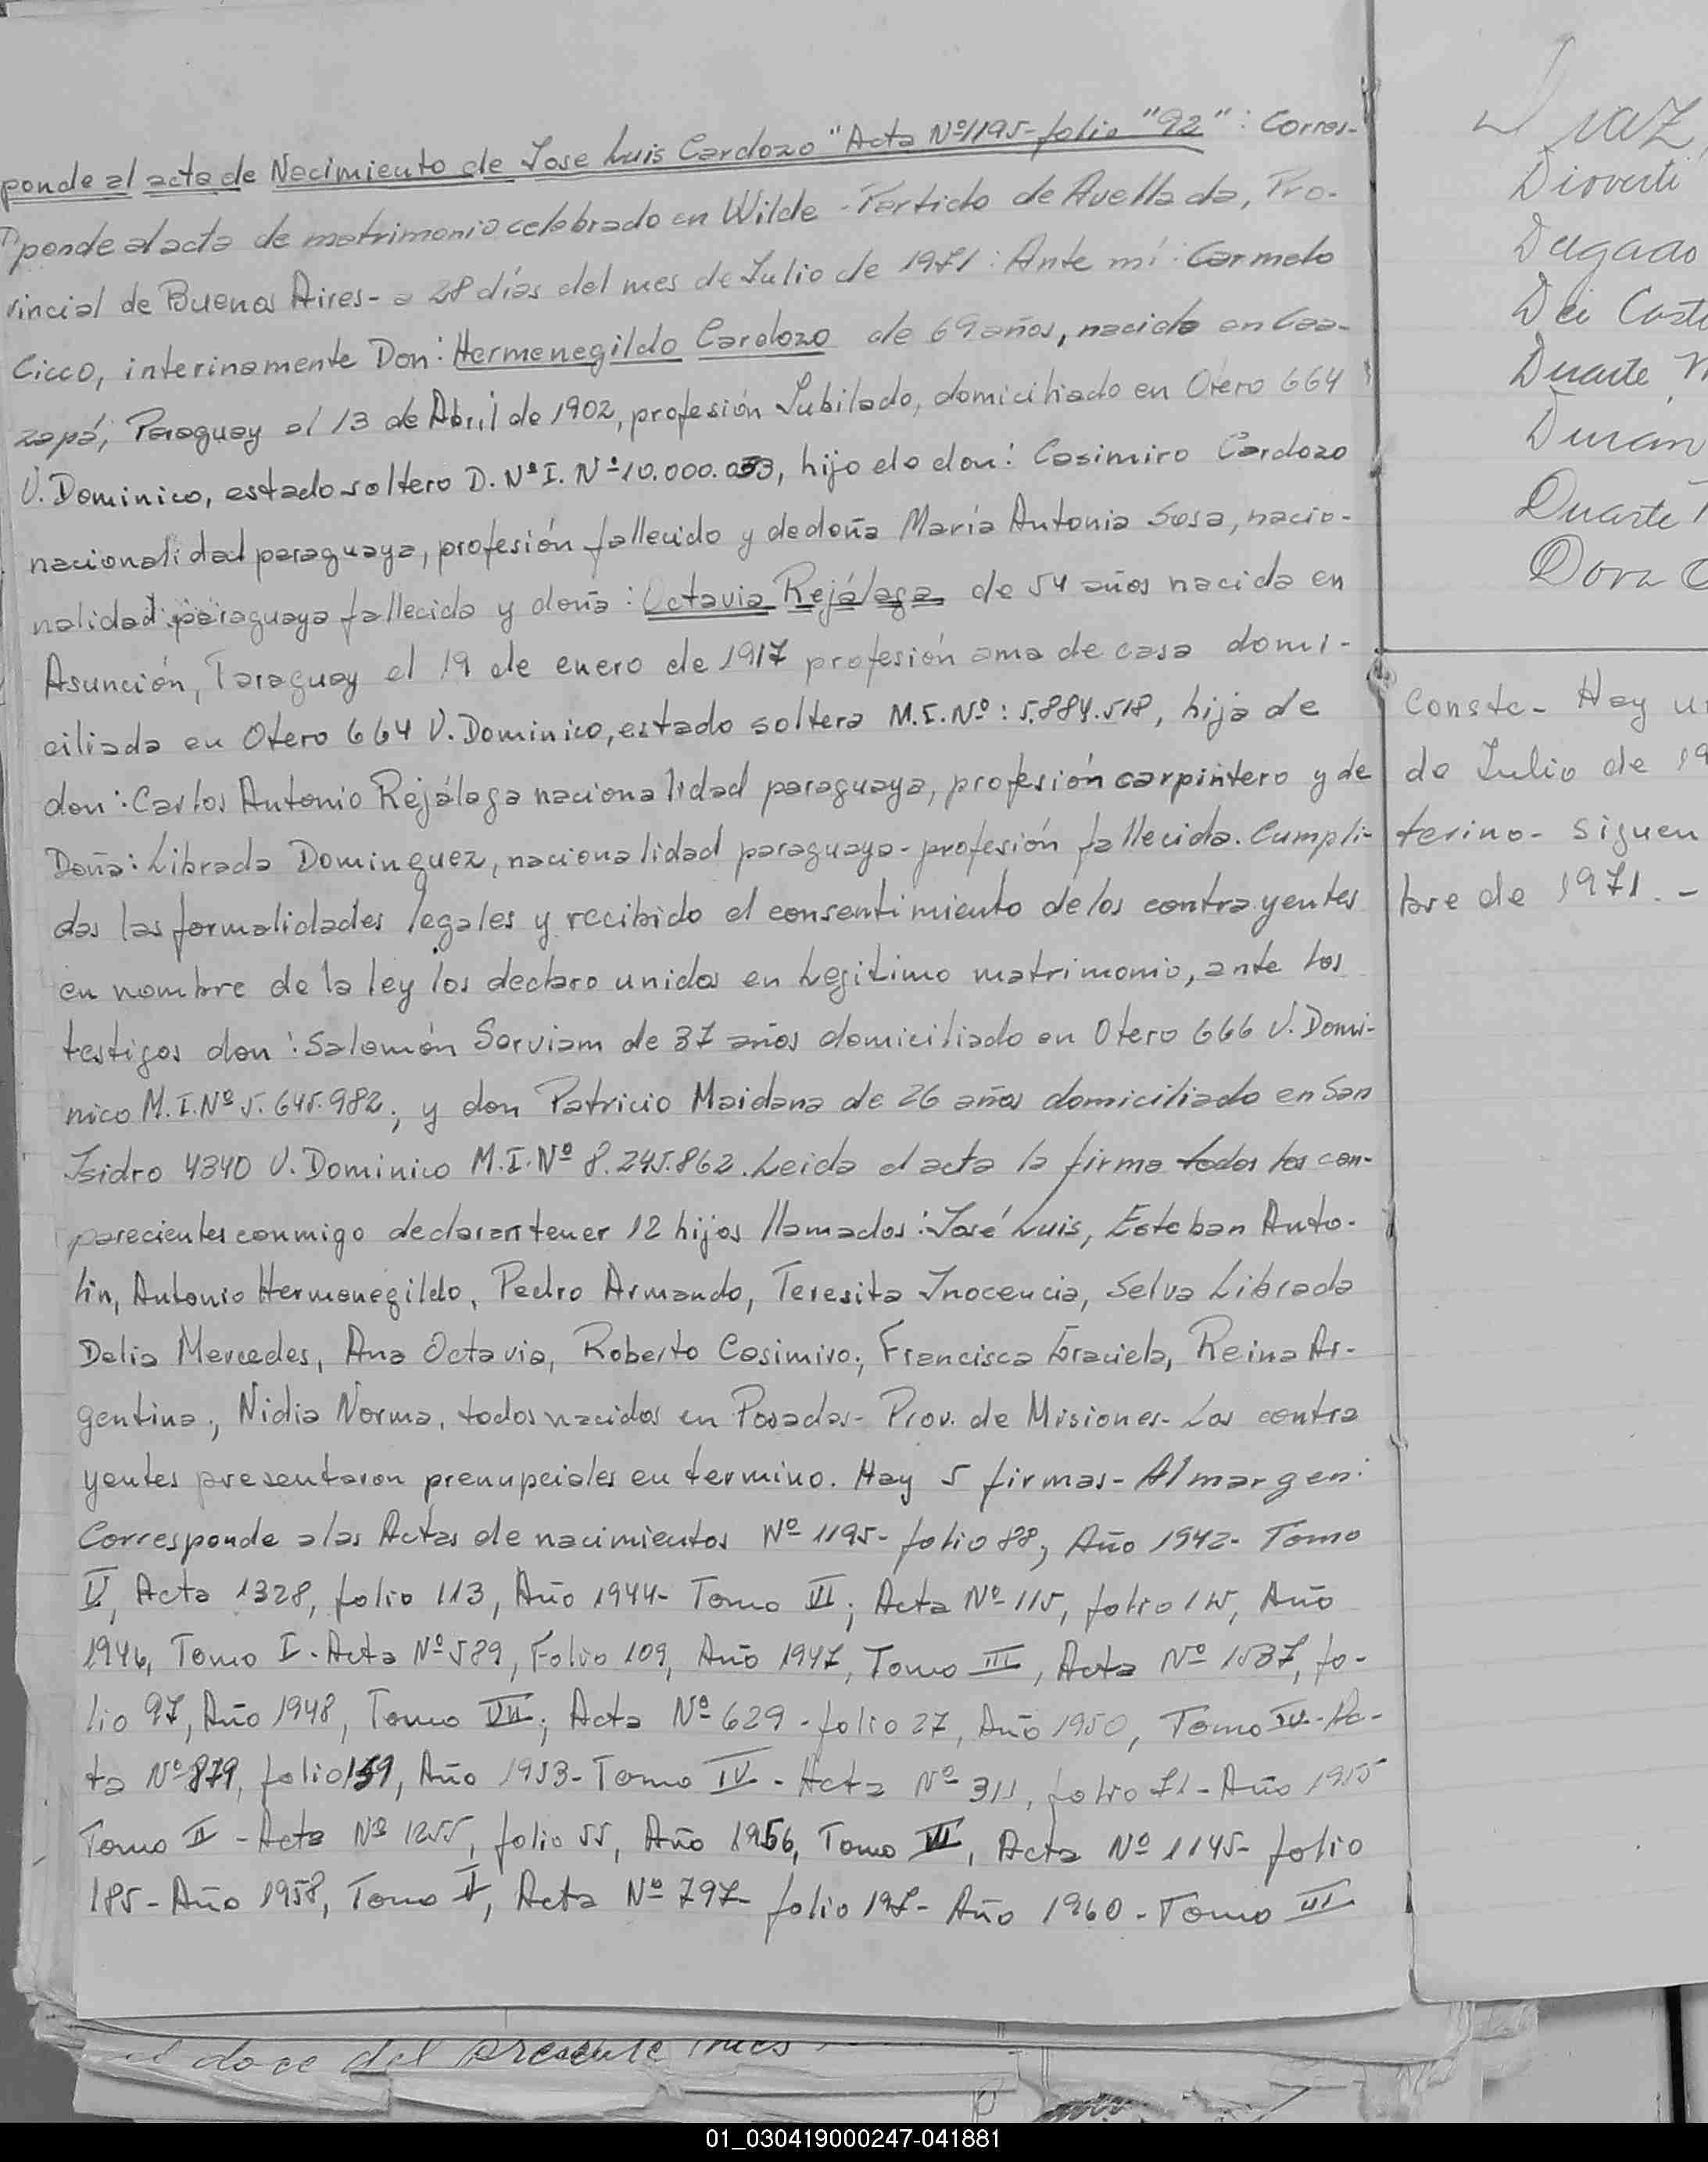 ponde al acta de Nacimiento de Jose Luis Cardozo "Acta Nº1195-folio "92" : Corres-
ponde al acta de matrimonio celebrado en Wilde - Partido de Avellada, Pro-
vincial de Buenos Aires- a 28 días del mes de Julio de 1971 : Ante mí : Carmelo
Cicco, interinamente Don : Hermenegildo Cardozo de 69 años, nacido en Caa-
zapá, Paraguay el 13 de Abril de 1902, profesión Jubilado, domiciliado en Otero 664
V. Dominico, estado soltero D. Nº I. Nº 10.000.033, hijo de don : Casimiro Cardozo
nacionalidad paraguaya, profesión fallecido y de doña María Antonia Sosa, nacio-
nalidad paraguaya fallecida y doña : Octavia Rejálaga de 54 años nacida en
Asunción, Paraguay el 19 de enero de 1917 profesión ama de casa domi-
ciliada en Otero 664 V. Dominico, estado soltera M.I.Nº : 5.884.518, hija de
don : Carlos Antonio Rejálaga nacionalidad paraguaya, profesión carpintero y de
Doña : Librada Dominguez, nacionalidad paraguaya - profesión fallecida. Cumpli-
das las formalidades legales y recibido el consentimiento de los contrayentes
en nombre de la ley los declaro unidos en Legitimo matrimonio, ante los
testigos don : Salomón Serviam de 37 años domiciliado en Otero 666 V. Domi-
nico M.I.Nº 5.645.982, y don Patricio Maidana de 26 años domiciliado en San
Isidro 4340 V. Dominico M.I.Nº 8.245.862. Leida el acta la firma todos los con-
parecientes conmigo declaran tener 12 hijos llamados : José Luis, Esteban Anto-
lin, Antonio Hermenegildo, Pedro Armando, Teresita Inocencia, Selva Librada
Delia Mercedes, Ana Octavia, Roberto Casimiro, Francisca Graciela, Reina Ar-
gentina, Nidia Norma, todos nacidos en Posadas- Prov. de Misiones- Los contra
yentes presentaron prenupciales en termino. Hay 5 firmas - Al margen :
Corresponde a las Actas de nacimientos Nº 1195- folio 88, Año 1942- Tomo
V, Acta 1328, folio 113, Año 1944- Tomo VI; Acta Nº 115, folio 115, Año
1946, Tomo I - Acta Nº 589, Folio 109, Año 1947, Tomo III, Acta Nº 1537, fo-
lio 97, Año 1948, Tomo VII; Acta Nº 629 - folio 27, Año 1950, Tomo IV - Ac-
ta Nº 879, folio 159, Año 1953- Tomo IV - Acta Nº 311, folio 71 - Año 1955
Tomo II - Acta Nº 1255, folio 55, Año 1956, Tomo VII, Acta Nº 1145- folio
185 - Año 1958, Tomo V, Acta Nº 797- folio 197- Año 1960 - Tomo III
Diaz,
Dioverti
Delgado
Dei Cast
Duarte
Durán
Duarte
Dora
Conste- Hay u
de Julio de 19
terino- siguen
bre de 1971. -
el doce del presente mes
01_030419000247-041881